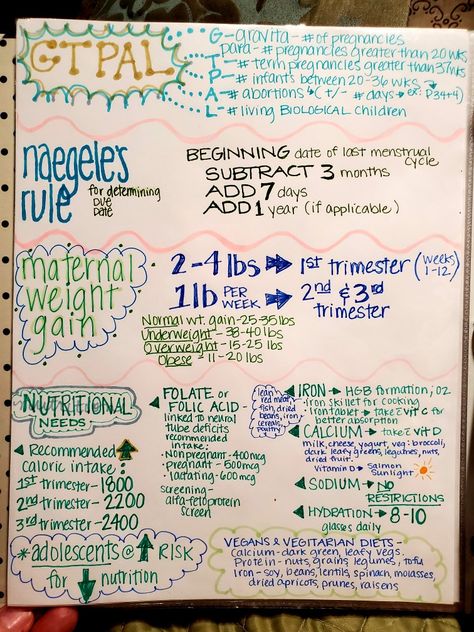 GTPAL
G- gravita- # of pregnancies
para- # pregnancies greater than 20 wks
T- # term pregnancies greater than 37wks
P- # infants between 20-36 wks
A- # abortions (+/- # days → ex: P34+4)
L- # living BIOLOGICAL children
naegele's
rule
for determining
DUE
DATE
BEGINNING date of last menstrual
cycle
SUBTRACT 3 months
ADD 7 days
ADD 1 year (if applicable)
maternal
weight
gain
2-4 lbs 1st trimester (weeks
1-12)
1lb PER
WEEK 2nd & 3rd
trimester
Normal wt. gain-25-35lbs
Underweight - 38-40lbs
Overweight - 15-25 lbs
Obese = 11-20 lbs
NUTRITIONAL
NEEDS
Recommended
caloric intake:
1st trimester-1800
2nd trimester-2200
3rd trimester-2400
FOLATE or
FOLIC ACID -
linked to neural
tube deficits
recommended
intake:
Nonpregnant-400mcg
pregnant - 600mcg
lactating - 600mcg
screening -
alfa-fetoprotein
screen
lean
red meat,
fish, dried
beans, iron
cereals,
poultry
IRON → HGB formation; O2
iron skillet for cooking
Iron tablet → take c̄ vit C for
better absorption
CALCIUM → take c̄ vit D
milk, cheese, yogurt, veg: broccoli,
dark leafy greens, legumes, nuts,
dried fruit.
vitamin D → salmon
Sunlight
SODIUM → NO
RESTRICTIONS
HYDRATION → 8-10
glasses daily
*adolescents @ ↑ RISK
for ↓ nutrition
VEGANS & VEGITARIAN DIETS -
Calcium-dark green, leafy vegs.
Protein - nuts, grains, legumes, tofu
Iron - soy, beans, lentils, spinach, molasses,
dried apricots, prunes, raisens